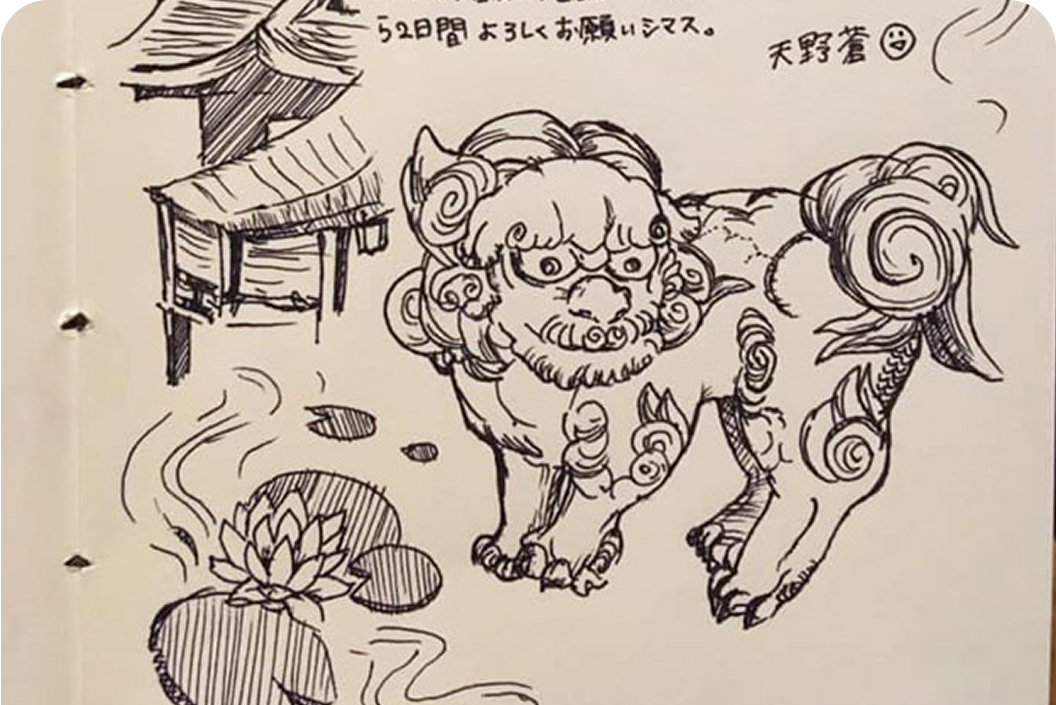 ら2日間 よろしくお願いシマス。
天野蒼